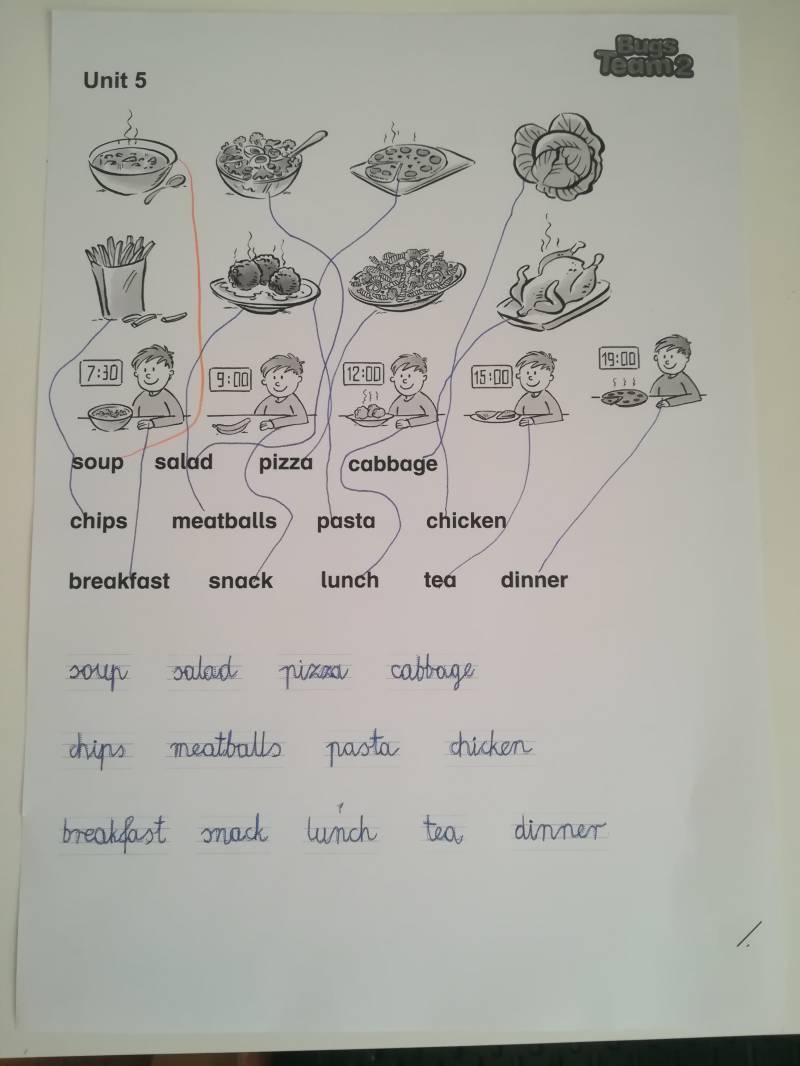 Bugs
Team 2
Unit 5
7:30
9:00
12:00
15:00
19:00
soup salad pizza cabbage
chips meatballs pasta chicken
breakfast snack lunch tea dinner
soup salad pizza cabbage
chips meatballs pasta chicken
breakfast snack lunch tea dinner